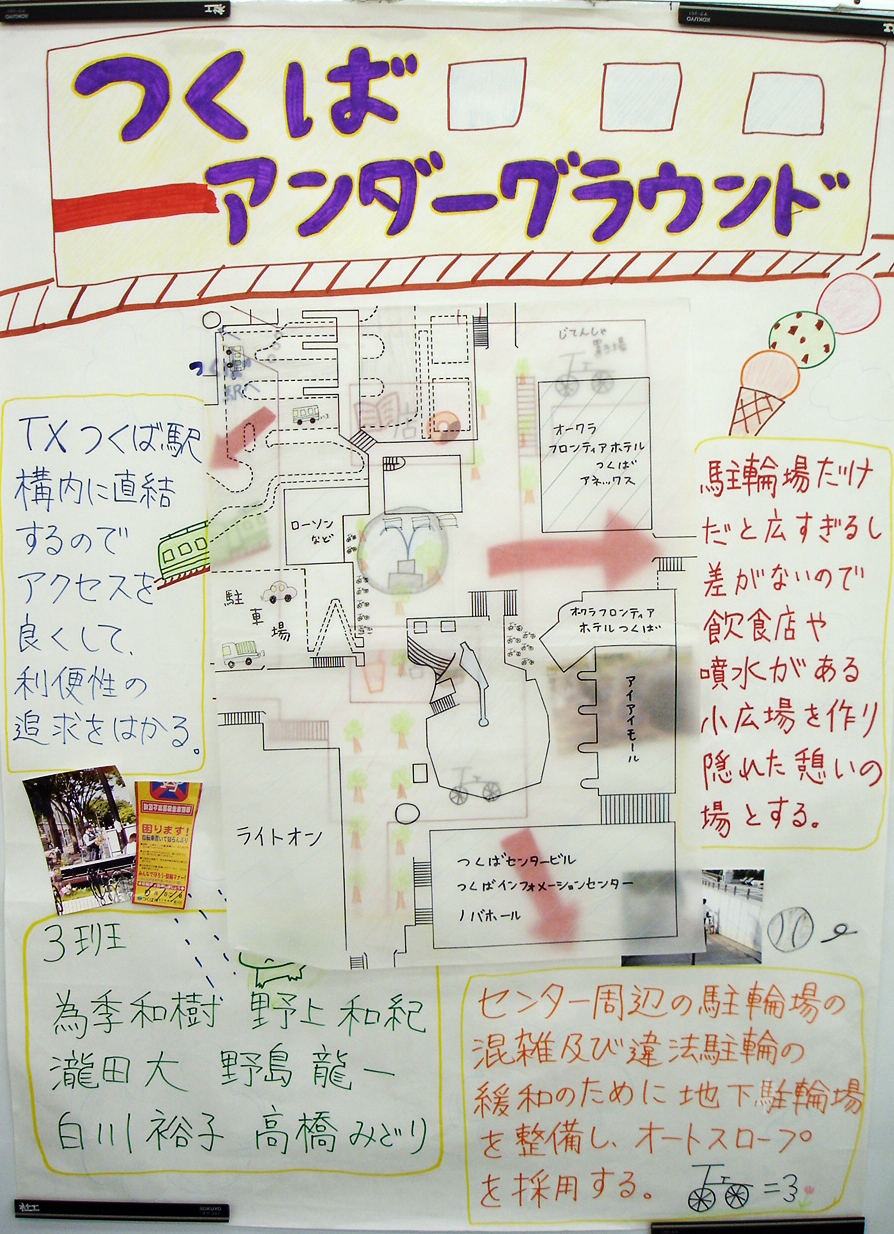 つくば
アンダーグラウンド
TXつくば駅
構内に直結
するので
アクセスを
良くして、
利便性の
追求をはかる。
じてんしゃ
置き場
オークラ
フロンティアホテル
つくば
アネックス
ローソン
など
駐車場
オークラフロンティア
ホテルつくば
アイアイモール
ライトオン
つくばセンタービル
つくばインフォメーションセンター
ノバホール
駐輪場だけ
だと広すぎるし
差がないので
飲食店や
噴水がある
小広場を作り
隠れた憩いの
場とする。
困ります!
3班
為季和樹 野上和紀
瀧田大 野島龍一
白川裕子 高橋みどり
センター周辺の駐輪場の
混雑及び違法駐輪の
緩和のために地下駐輪場
を整備し、オートスロープ
を採用する。
KOKUYO
KOKUYO
KOKUYO